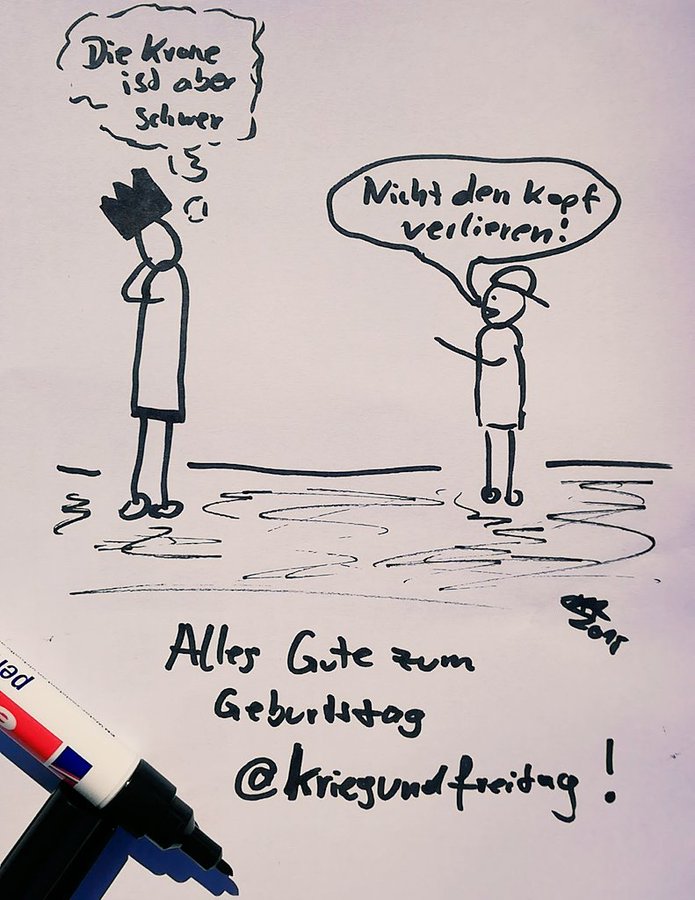 Die Krone
ist aber
schwer
Nicht den Kopf
verlieren!
2015
Alles Gute zum
Geburtstag
@kriegundfreitag!
per